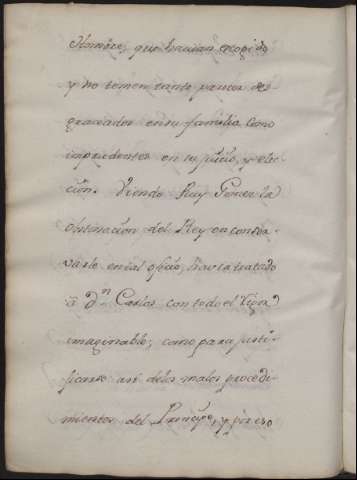 Hombre, que havian escogido
y no temen tanto parecer des-
graciados en su familia como
imprudentes en su juicio, y elec-
ción. Viendo Ruy Gomez la
obstinación del Rey en conser-
varle en tal oficio, havia tratado
á Dⁿ Carlos con todo el rigor
imaginable; como para justi-
ficarse así de los malos procedi-
mientos del Principe, y por eso